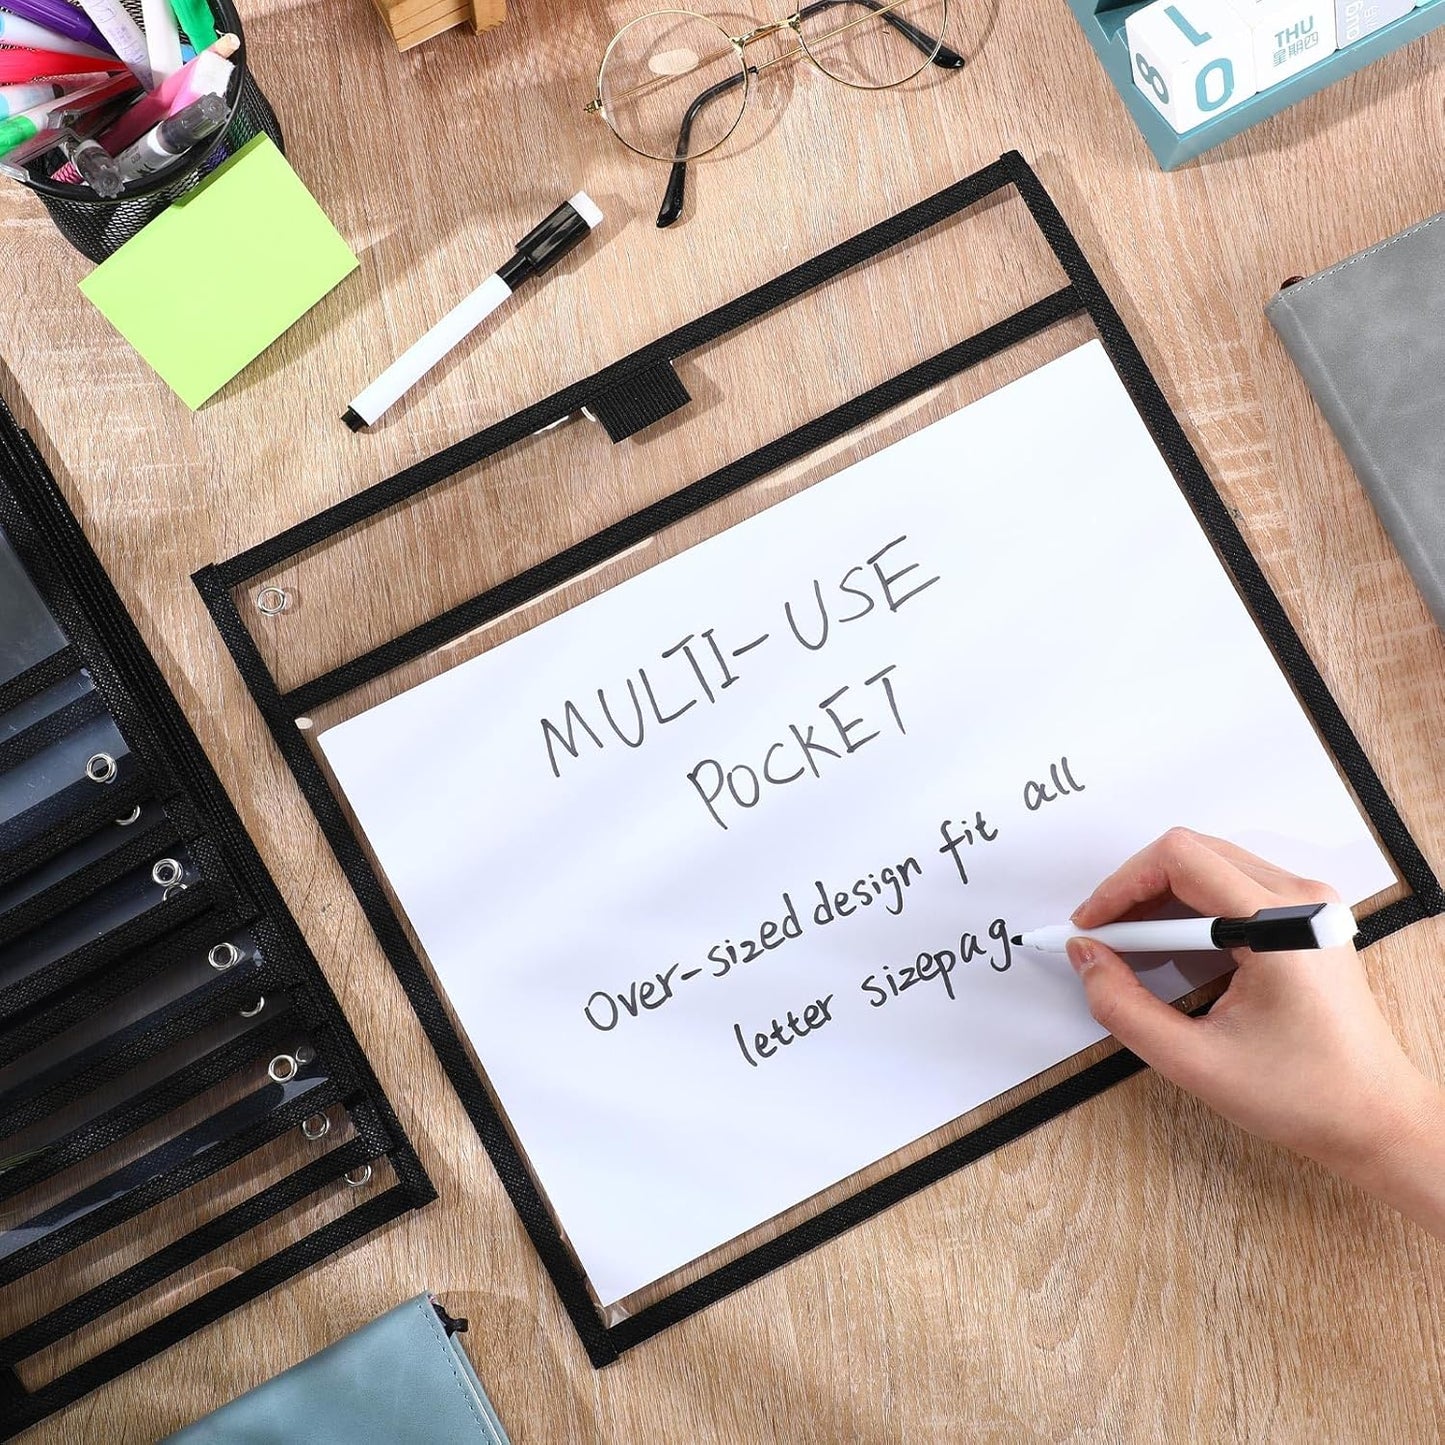 1
8 0
THU
星期四
MULTI-USE
POCKET
Over-sized design fit all
letter sizepag